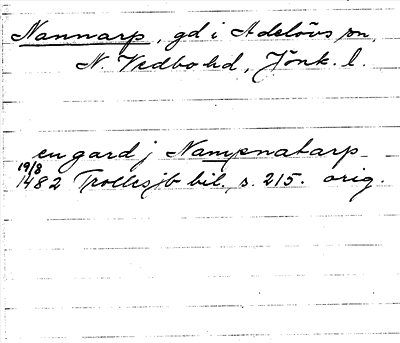 Nannarp, gd i Adelövs sn,
N. Vedbo hd, Jönk. l.
en gard j Nampnatarp
19/8
1482 Trollesjö bil. s. 215. orig.